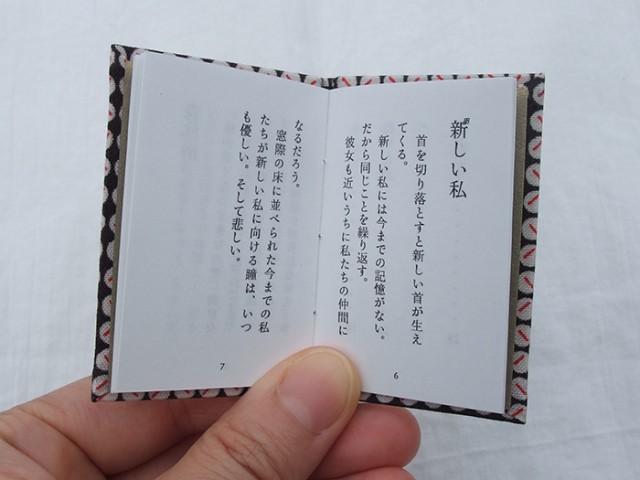 新しい私
首を切り落とすと新しい首が生え
てくる。
新しい私には今までの記憶がない。
だから同じことを繰り返す。
彼女も近いうちに私たちの仲間に
6
なるだろう。
窓際の床に並べられた今までの私
たちが新しい私に向ける瞳は、いつ
も優しい。そして悲しい。
7